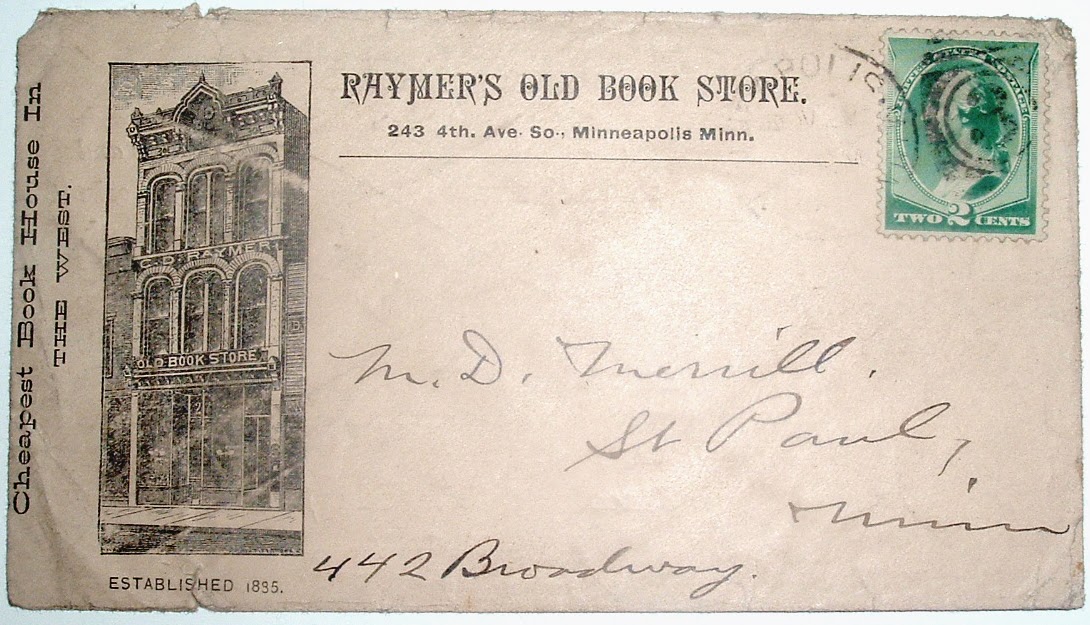 Cheapest Book House In
THE WEST.
RAYMER'S OLD BOOK STORE.
243 4th. Ave. So., Minneapolis Minn.
TWO 2 CENTS
C. D. RAYMER
OLD BOOK STORE
M. D. Merrill.
St Paul,
Minn
442 Broadway.
ESTABLISHED 1885.